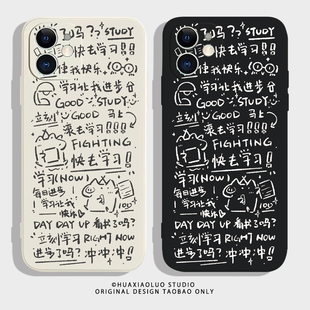 吗?? STUDY
快去学习!!
使我快乐
学习让我进步
GOOD STUDY
立刻 GOOD 马上
滚去学习!!!
FIGHTING
快去学习!!
学习(NOW)
每日进步
学习让我
快乐
100
DAY DAY UP 看书了吗?
立刻学习 RIGHT NOW
进步了吗?? 冲冲冲!!
吗?? STUDY
快去学习!!
使我快乐
学习让我进步
GOOD STUDY
立刻 GOOD 马上
滚去学习!!!
FIGHTING
快去学习!!
学习(NOW)
每日进步
学习让我
快乐
100
DAY DAY UP 看书了吗?
立刻学习 RIGHT NOW
进步了吗?? 冲冲冲!!
©HUAXIAOLUO STUDIO
ORIGINAL DESIGN TAOBAO ONLY